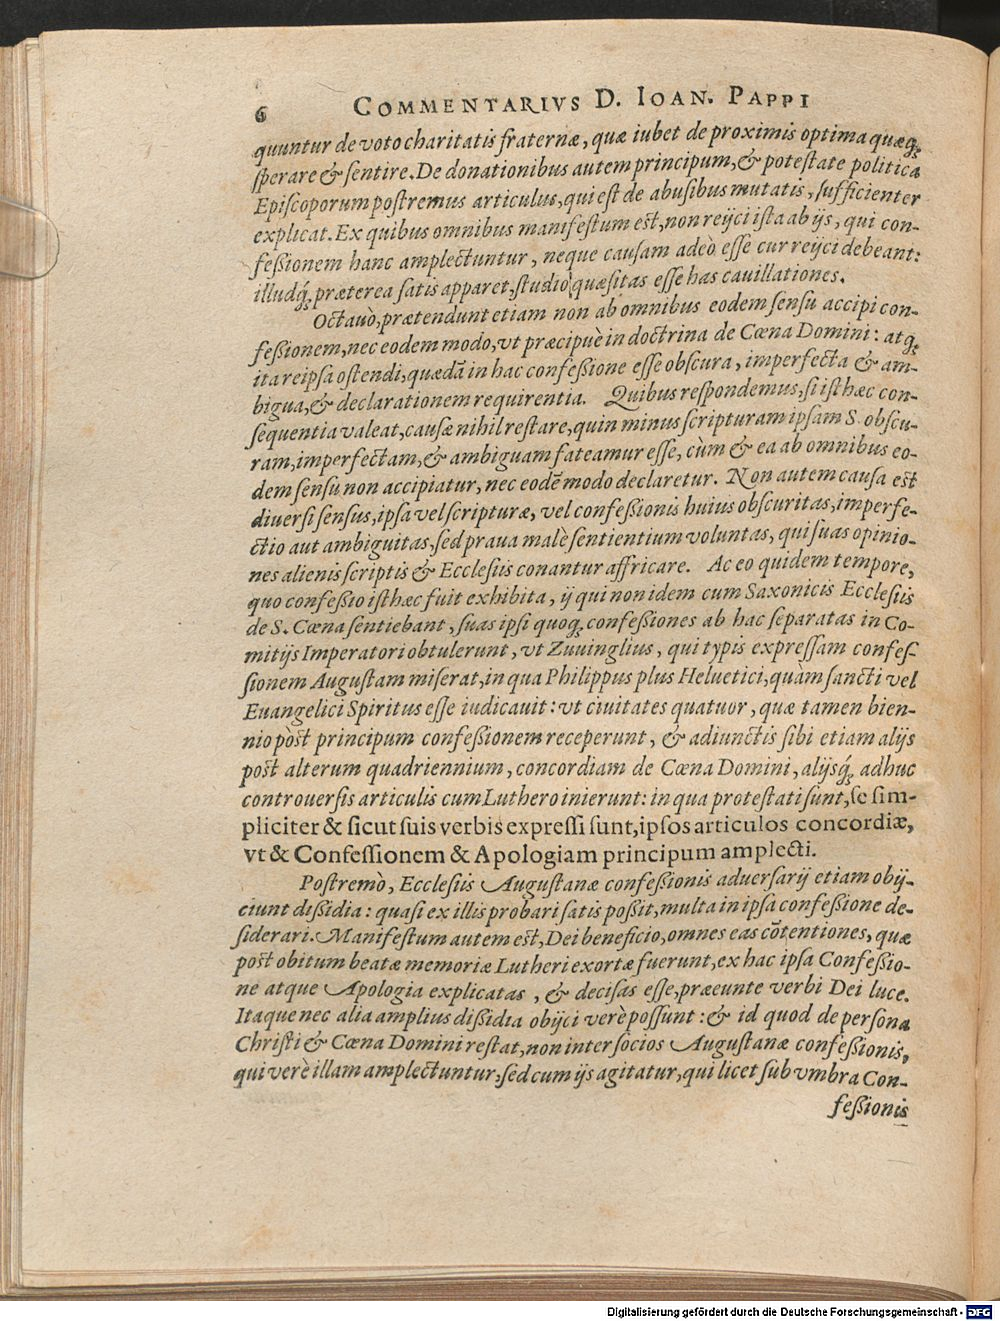 6 COMMENTARIVS D. IOAN. PAPPI
quuntur de voto charitatis fraternæ, quæ iubet de proximis optima quæq;
ſperare & ſentire. De donationibus autem principum, & poteſtate politica
Epiſcoporum poſtremus articulus, qui eſt de abuſibus mutatis, ſufficienter
explicat. Ex quibus omnibus manifeſtum eſt, non reijci iſta ab ijs, qui con-
feßionem hanc amplectuntur, neque cauſam adeò eſſe cur reijci debeant:
illudq; præterea ſatis apparet, ſtudio quæſitas eſſe has cauillationes.
Octauò, prætendunt etiam non ab omnibus eodem ſenſu accipi con-
feßionem, nec eodem modo, vt præcipuè in doctrina de Cœna Domini: atq;
ita reipſa oſtendi, quædã in hac confeßione eſſe obſcura, imperfecta & am-
bigua, & declarationem requirentia. Quibus reſpondemus, ſi iſthæc con-
ſequentia valeat, cauſæ nihil reſtare, quin minus ſcripturam ipſam S. obſcu-
ram, imperfectam, & ambiguam fateamur eſſe, cùm & ea ab omnibus eo-
dem ſenſu non accipiatur, nec eodẽ modo declaretur. Non autem cauſa eſt
diuerſi ſenſus, ipſa vel ſcripturæ, vel confeßionis huius obſcuritas, imperfe-
ctio aut ambiguitas, ſed praua malè ſentientium voluntas, qui ſuas opinio-
nes alienis ſcriptis & Eccleſiis conantur affricare. Ac eo quidem tempore,
quo confeßio iſthæc fuit exhibita, ij qui non idem cum Saxonicis Eccleſiis
de S. Cœna ſentiebant, ſuas ipſi quoq; confeßiones ab hac ſeparatas in Co-
mitijs Imperatori obtulerunt, vt Zuuinglius, qui typis expreſſam confeſ-
ſionem Auguſtam miſerat, in qua Philippus plus Heluetici, quàm ſancti vel
Euangelici Spiritus eſſe iudicauit: vt ciuitates quatuor, quæ tamen bien-
nio pòſt principum confeßionem receperunt, & adiunctis ſibi etiam alijs
poſt alterum quadriennium, concordiam de Cœna Domini, alijsq; adhuc
controuerſis articulis cum Luthero inierunt: in qua proteſtati ſunt, ſe ſim-
pliciter & ſicut ſuis verbis expreſſi ſunt, ipſos articulos concordiæ,
vt & Confeſſionem & Apologiam principum amplecti.
Poſtremò, Eccleſiis Auguſtanæ confeßionis aduerſarij etiam obij-
ciunt dißidia: quaſi ex illis probari ſatis poßit, multa in ipſa confeßione de-
ſiderari. Manifeſtum autem eſt, Dei beneficio, omnes eas cõtentiones, quæ
poſt obitum beatæ memoriæ Lutheri exortæ fuerunt, ex hac ipſa Confeßio-
ne atque Apologia explicatas, & deciſas eſſe, præeunte verbi Dei luce.
Itaque nec alia amplius dißidia obijci verè poſſunt: & id quod de perſona
Chriſti & Cœna Domini reſtat, non inter ſocios Auguſtanæ confeßionis,
qui verè illam amplectuntur, ſed cum ijs agitatur, qui licet ſub vmbra Con-
feßionis
Digitalisierung gefördert durch die Deutsche Forschungsgemeinschaft - DFG